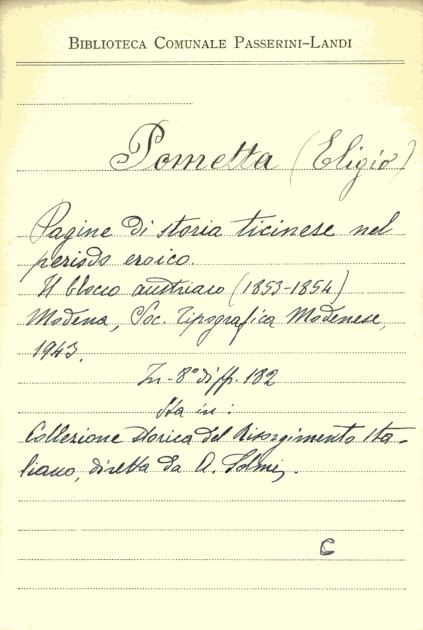 BIBLIOTECA COMUNALE PASSERINI-LANDI
Pometta (Eligio)
Pagine di storia ticinese nel
periodo eroico.
Il blocco austriaco (1853-1854)
Modena, Soc. Tipografica Modenese,
1943.
In-8° di pp. 182
Sta in:
Collezione storica del Risorgimento Ita-
liano, diretta da A. Solmi.
C